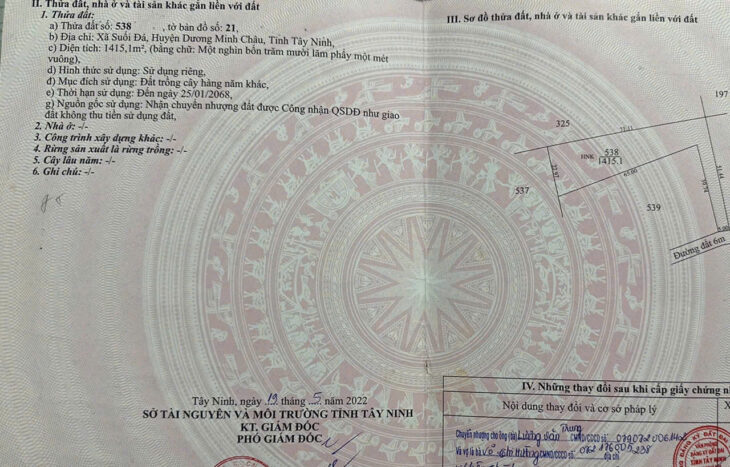 II. Thửa đất, nhà ở và tài sản khác gắn liền với đất
1. Thửa đất:
a) Thửa đất số: 538 , tờ bản đồ số: 21,
b) Địa chỉ: Xã Suối Đá, Huyện Dương Minh Châu, Tỉnh Tây Ninh,
c) Diện tích: 1415,1m², (bằng chữ: Một nghìn bốn trăm mười lăm phẩy một mét
vuông),
d) Hình thức sử dụng: Sử dụng riêng,
đ) Mục đích sử dụng: Đất trồng cây hàng năm khác,
e) Thời hạn sử dụng: Đến ngày 25/01/2068,
g) Nguồn gốc sử dụng: Nhận chuyển nhượng đất được Công nhận QSDĐ như giao
đất không thu tiền sử dụng đất,
2. Nhà ở: -/-
3. Công trình xây dựng khác: -/-
4. Rừng sản xuất là rừng trồng: -/-
5. Cây lâu năm: -/-
6. Ghi chú: -/-
Tây Ninh, ngày 19 tháng 5 năm 2022
SỞ TÀI NGUYÊN VÀ MÔI TRƯỜNG TỈNH TÂY NINH
KT. GIÁM ĐỐC
PHÓ GIÁM ĐỐC
III. Sơ đồ thửa đất, nhà ở và tài sản khác gắn liền với đất
197
325
538
HNK 1415.1
537
539
5.00
Đường đất 6m
IV. Những thay đổi sau khi cấp giấy chứng
Nội dung thay đổi và cơ sở pháp lý
Chuyển nhượng cho ông (bà) Lương Văn Trung
CMND/CCCD số
Và vợ là bà Võ CMND/CCCD số:
Địa chỉ
ĐĂNG KÝ ĐẤT ĐAI
TỈNH TÂY NINH